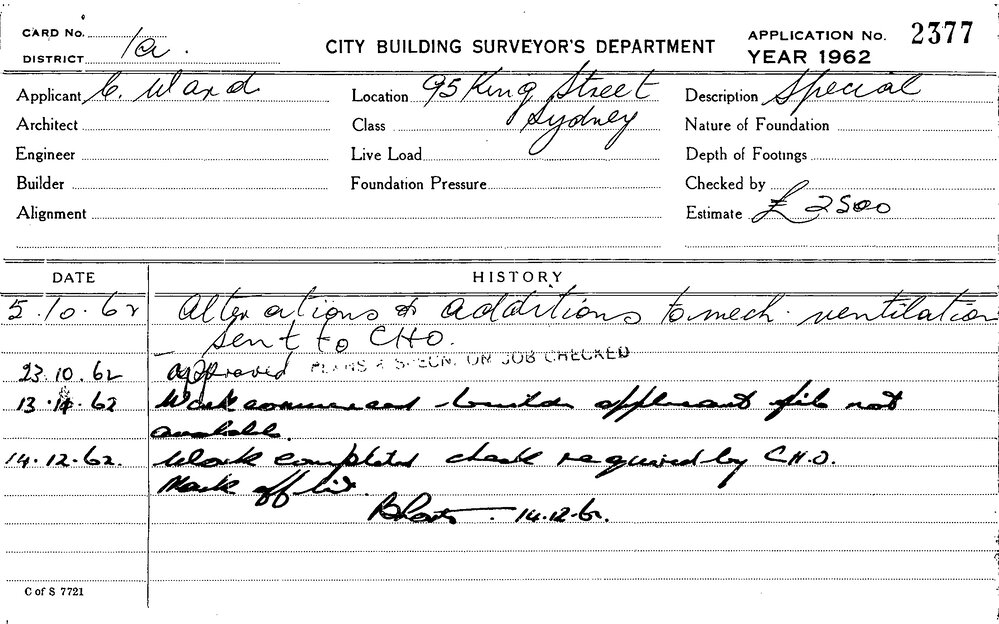 CARD No.
DISTRICT 1a.
CITY BUILDING SURVEYOR'S DEPARTMENT
APPLICATION No. 2377
YEAR 1962
Applicant C. Ward
Location 95 King Street
Sydney
Description Special
Architect
Class
Nature of Foundation
Engineer
Live Load
Depth of Footings
Builder
Foundation Pressure
Checked by
Alignment
Estimate £2500
DATE HISTORY
5.10.62 Alterations & additions to mech. ventilation
– sent to CHO.
23.10.62 approved PLANS & SPECN. ON JOB CHECKED
13.12.62 Work commenced builder applicant file not
available.
14.12.62. Work completed check required by C.H.O.
Mark off list.
14.12.62.
C of S 7721